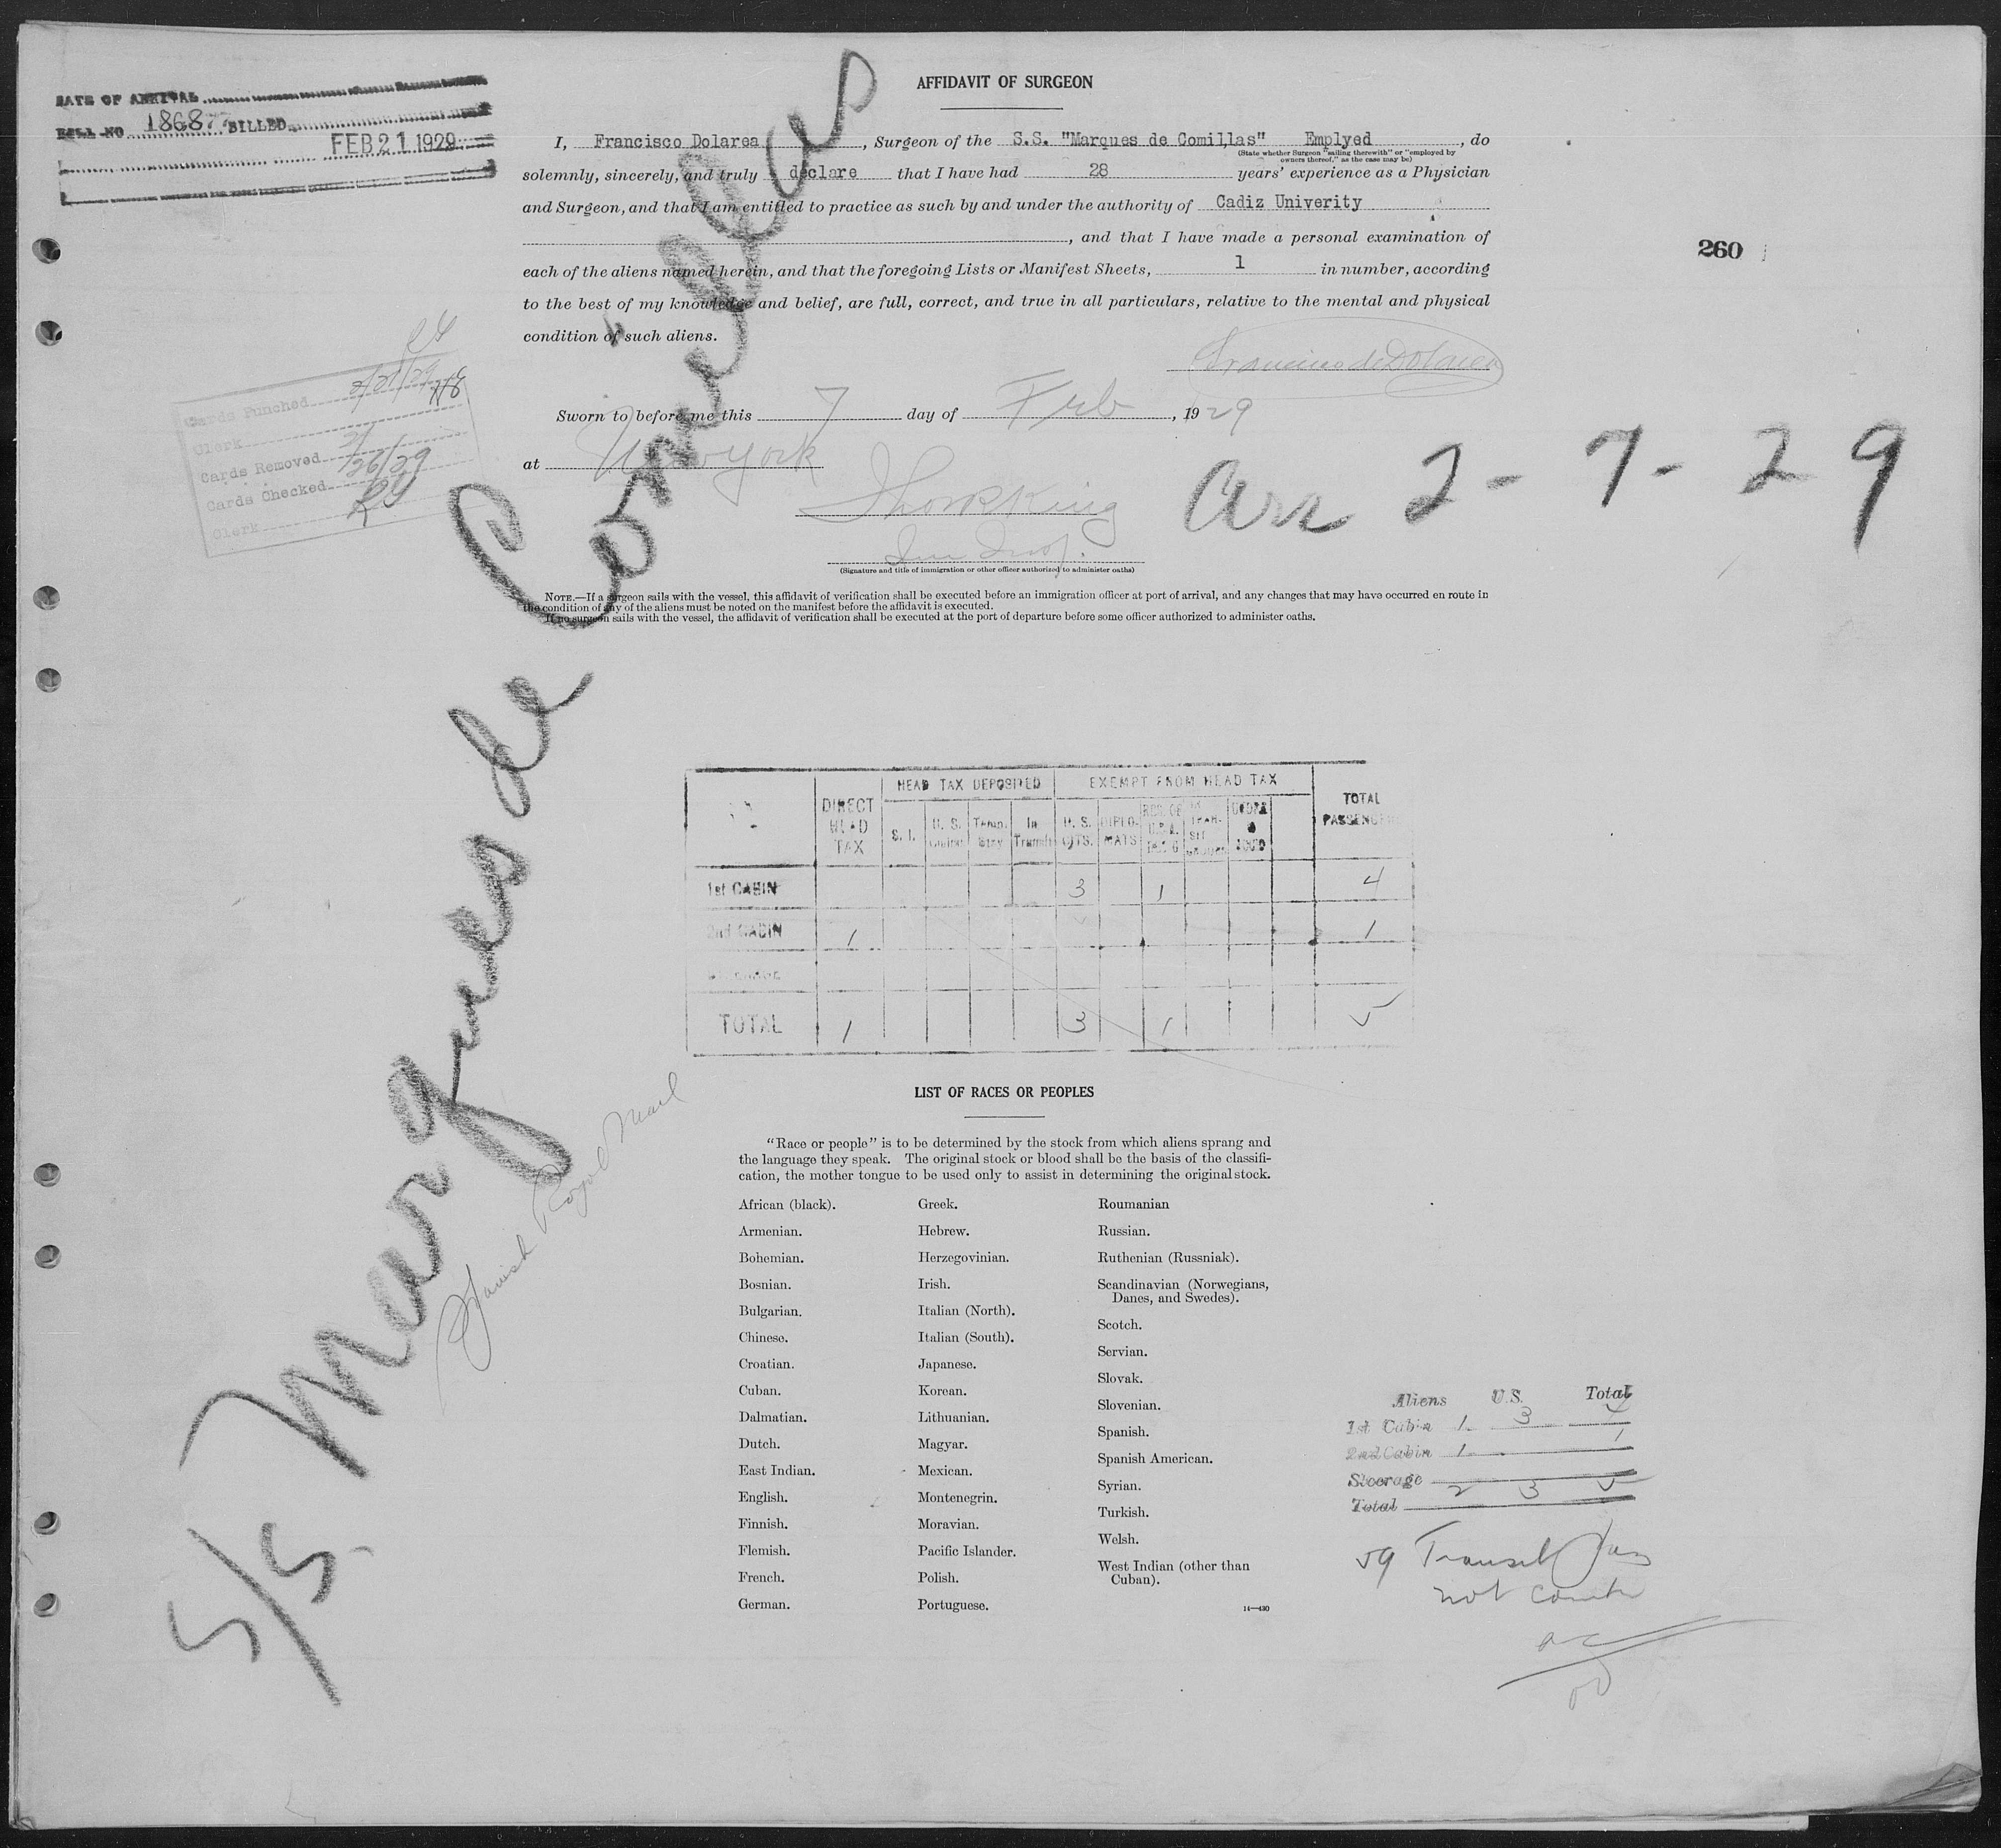 DATE OF ARRIVAL
BILL NO 18687 BILLED
FEB 21 1929
AFFIDAVIT OF SURGEON
I, Francisco Dolarea, Surgeon of the S.S. "Marques de Comillas" Emplyed, do
(State whether Surgeon "sailing therewith" or "employed by owners thereof," as the case may be)
solemnly, sincerely, and truly declare that I have had 28 years' experience as a Physician
and Surgeon, and that I am entitled to practice as such by and under the authority of Cadiz Univerity
, and that I have made a personal examination of
260
each of the aliens named herein, and that the foregoing Lists or Manifest Sheets, 1 in number, according
to the best of my knowledge and belief, are full, correct, and true in all particulars, relative to the mental and physical
condition of such aliens.
Cards Punched 2/21/29
Clerk
Cards Removed
Cards Checked 2/26/29
Clerk
Sworn to before me this 7 day of Feb, 1929
at New York
Arr 2-7-29
(Signature and title of immigration or other officer authorized to administer oaths)
NOTE.—If a surgeon sails with the vessel, this affidavit of verification shall be executed before an immigration officer at port of arrival, and any changes that may have occurred en route in
the condition of any of the aliens must be noted on the manifest before the affidavit is executed.
If no surgeon sails with the vessel, the affidavit of verification shall be executed at the port of departure before some officer authorized to administer oaths.
S/S. Marques de Comillas
Spanish Royal Mail
HEAD TAX DEPOSITED EXEMPT FROM HEAD TAX
DIRECT HEAD TAX S. I. U. S. Temp. Stay In Transit U. S. CITS. DIPLOMATS RES. OF U.S.A. TRANSIT UNDER TOTAL PASSENGERS
1st CABIN 3 1 4
2nd CABIN 1 1
TOTAL 1 3 1 5
LIST OF RACES OR PEOPLES
"Race or people" is to be determined by the stock from which aliens sprang and
the language they speak. The original stock or blood shall be the basis of the classifi-
cation, the mother tongue to be used only to assist in determining the original stock.
African (black).
Armenian.
Bohemian.
Bosnian.
Bulgarian.
Chinese.
Croatian.
Cuban.
Dalmatian.
Dutch.
East Indian.
English.
Finnish.
Flemish.
French.
German.
Greek.
Hebrew.
Herzegovinian.
Irish.
Italian (North).
Italian (South).
Japanese.
Korean.
Lithuanian.
Magyar.
Mexican.
Montenegrin.
Moravian.
Pacific Islander.
Polish.
Portuguese.
Roumanian
Russian.
Ruthenian (Russniak).
Scandinavian (Norwegians,
Danes, and Swedes).
Scotch.
Servian.
Slovak.
Slovenian.
Spanish.
Spanish American.
Syrian.
Turkish.
Welsh.
West Indian (other than
Cuban).
14—430
Aliens U.S. Total
1st Cabin 1 3 4
2nd Cabin 1 1
Steerage
Total 2 3 5
59 Transit Pas
not count